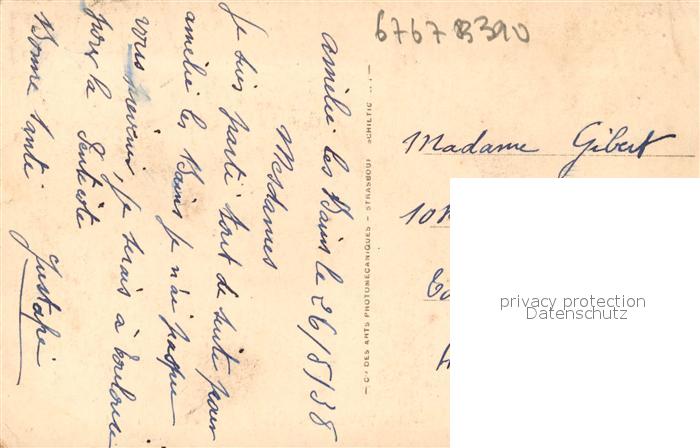 67678390
Amélie les Bains le 26/8/38
Mesdames
Je suis parti tout de suite pour
amélie les Bains je n'ai pas pu
vous prévenir, je serais à Toulouse
pour la
Bonne Santé.
— Cie DES ARTS PHOTOMECANIQUES — STRASBOURG SCHILTIG
Madame Gibert
10
privacy protection
Datenschutz